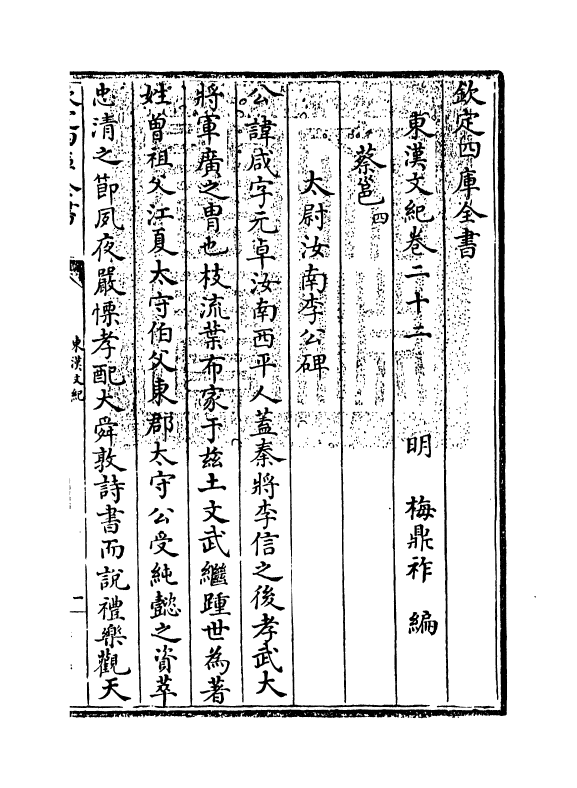 欽定四庫全書
東漢文紀卷二十二　明　梅鼎祚　編
蔡邕四
太尉汝南李公碑
公諱咸字元卓汝南西平人蓋秦將李信之後孝武大
將軍廣之胄也枝流葉布家于茲土文武繼踵世為著
姓曾祖父江夏太守伯父東郡太守公受純懿之資萃
忠清之節夙夜嚴慄孝配大舜敦詩書而說禮樂觀天
東漢文紀